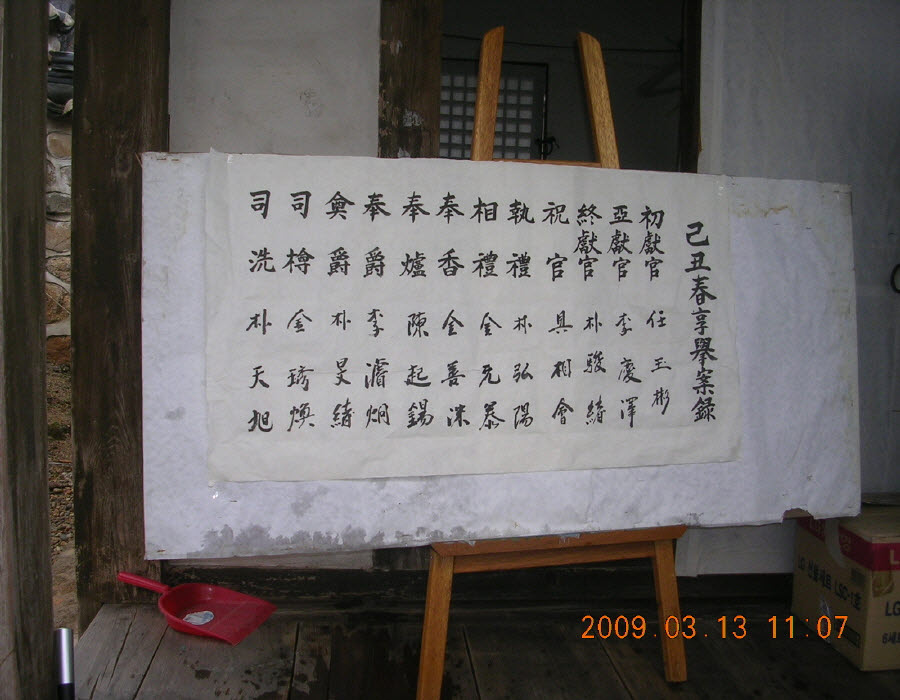 己丑春享擧案錄
初獻官 任玉彬
亞獻官 李慶澤
終獻官 朴駿緒
祝官 具相會
執禮 朴弘陽
相禮 金元泰
奉香 金善洙
奉爐 陳起錫
奉爵 李濬炯
奠爵 朴旻緖
司樽 金琇煥
司洗 朴天旭
LG 선물세트 LSC-1호
LG
2009.03.13 11:07